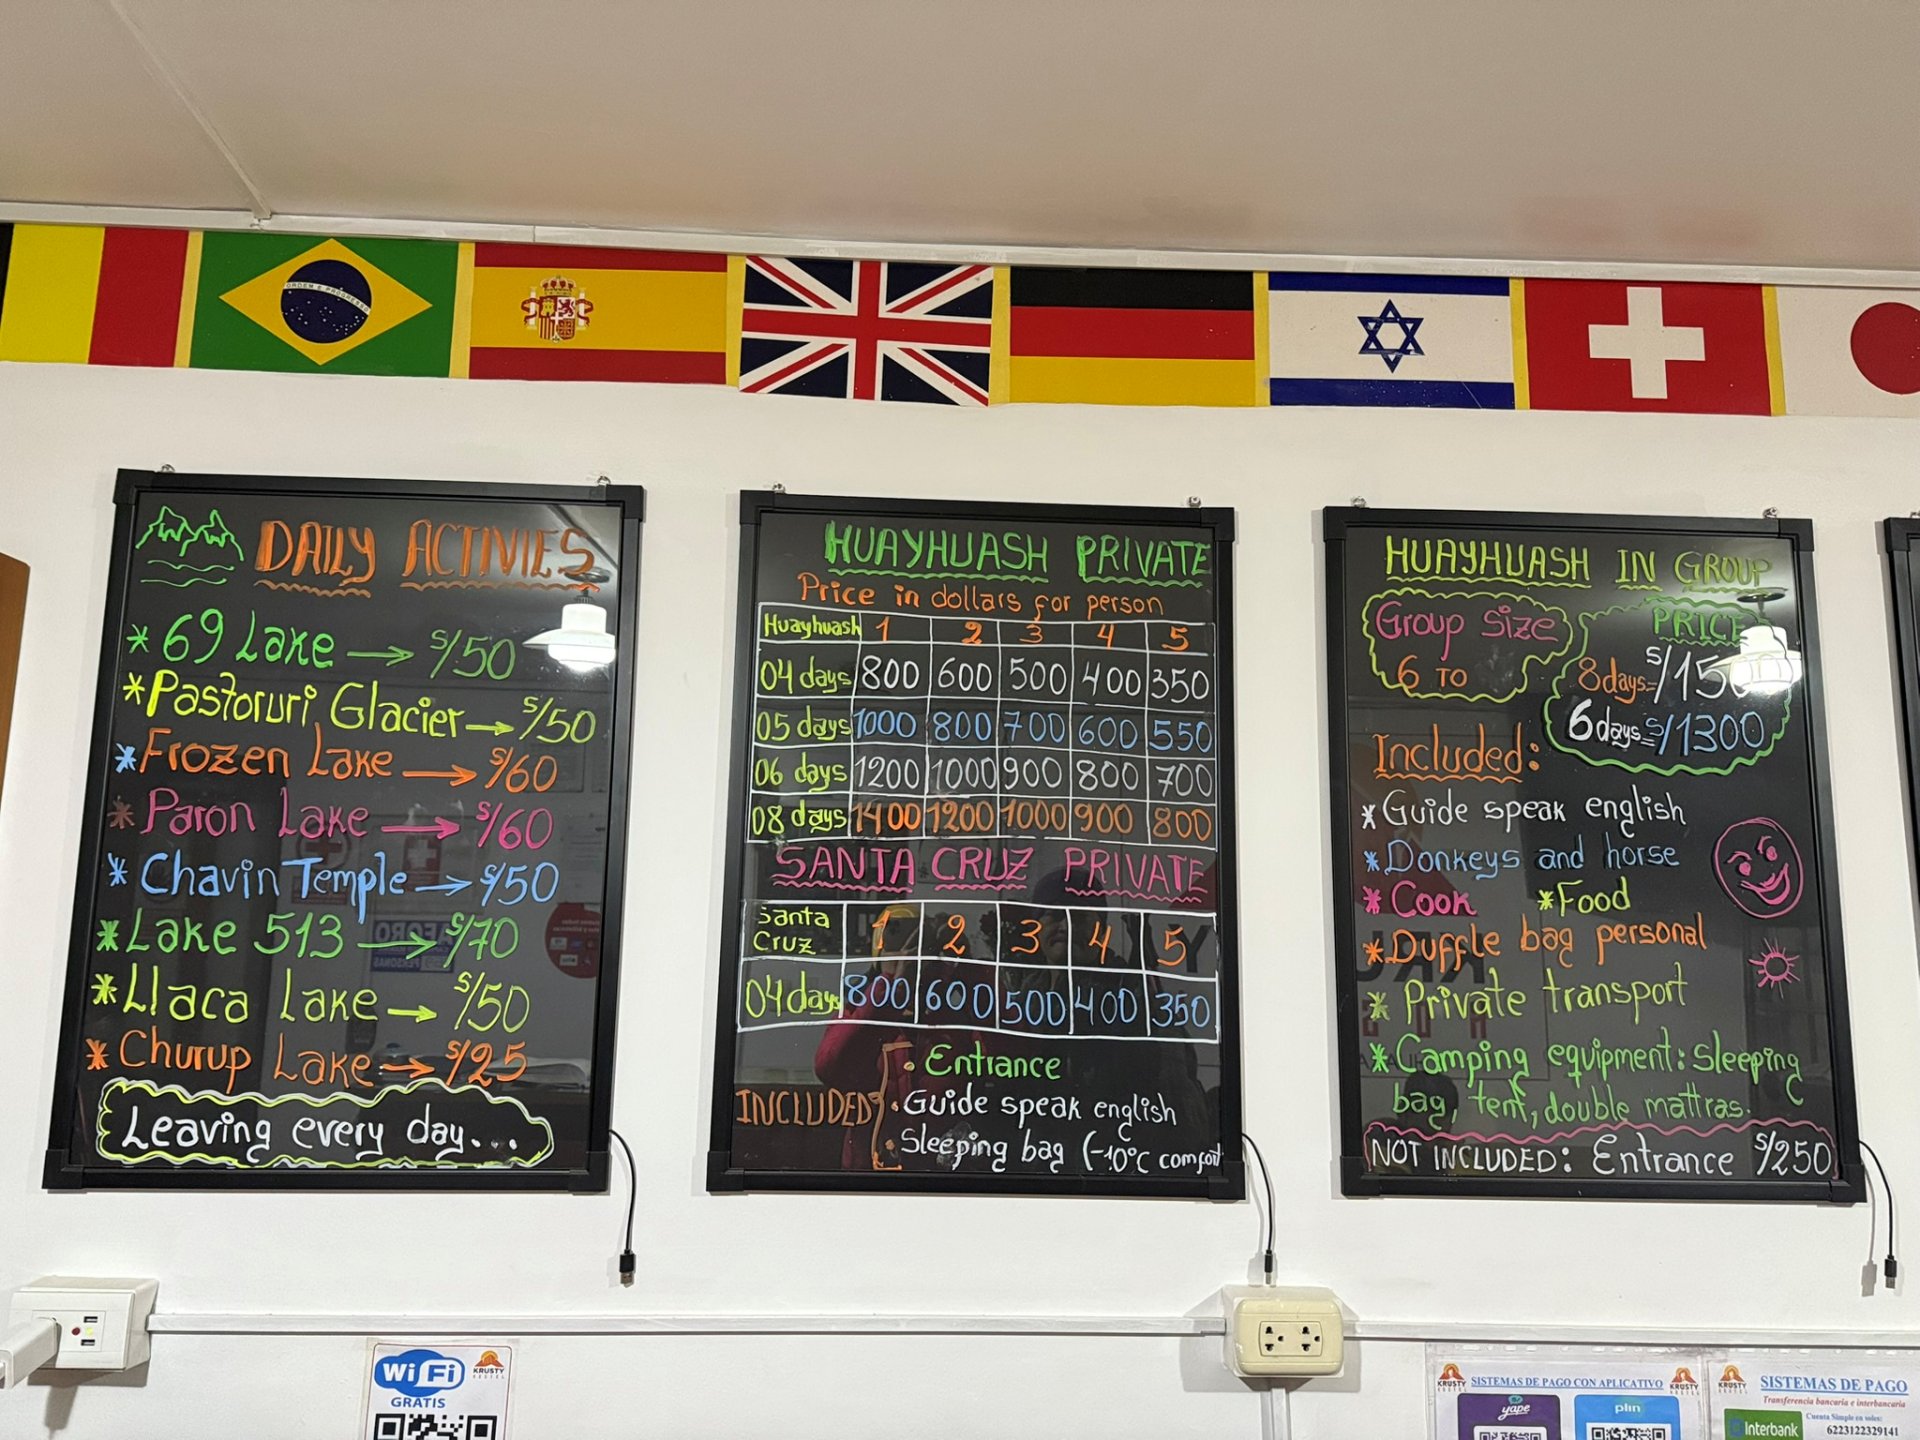 ORDEM E PROGRESSO
DAILY ACTIVIES
* 69 Lake → S/50
* Pastoruri Glacier → S/50
* Frozen Lake → S/60
* Paron Lake → S/60
* Chavin Temple → S/50
* Lake 513 → S/70
* Llaca Lake → S/50
* Churup Lake → S/25
Leaving every day...
HUAYHUASH PRIVATE
Price in dollars for person
Huayhuash 1 2 3 4 5
04 days 800 600 500 400 350
05 days 1000 800 700 600 550
06 days 1200 1000 900 800 700
08 days 1400 1200 1000 900 800
SANTA CRUZ PRIVATE
Santa Cruz 1 2 3 4 5
04 days 800 600 500 400 350
INCLUDED
• Entrance
• Guide speak english
• Sleeping bag (-10°C comfort
HUAYHUASH IN GROUP
Group Size
6 TO
PRICE
8 days = S/150
6 days = S/1300
Included:
* Guide speak english
* Donkeys and horse
* Cook * Food
* Duffle bag personal
* Private transport
* Camping equipment: Sleeping
bag, tent, double mattras.
NOT INCLUDED: Entrance S/250
WiFi
GRATIS
KRUSTY
HOSTEL
KRUSTY
HOSTEL
SISTEMAS DE PAGO CON APLICATIVO
KRUSTY
HOSTEL
yape
plin
KRUSTY
HOSTEL
SISTEMAS DE PAGO
Transferencia bancaria e interbancaria
Interbank
Cuenta Simple en soles:
6223122329141